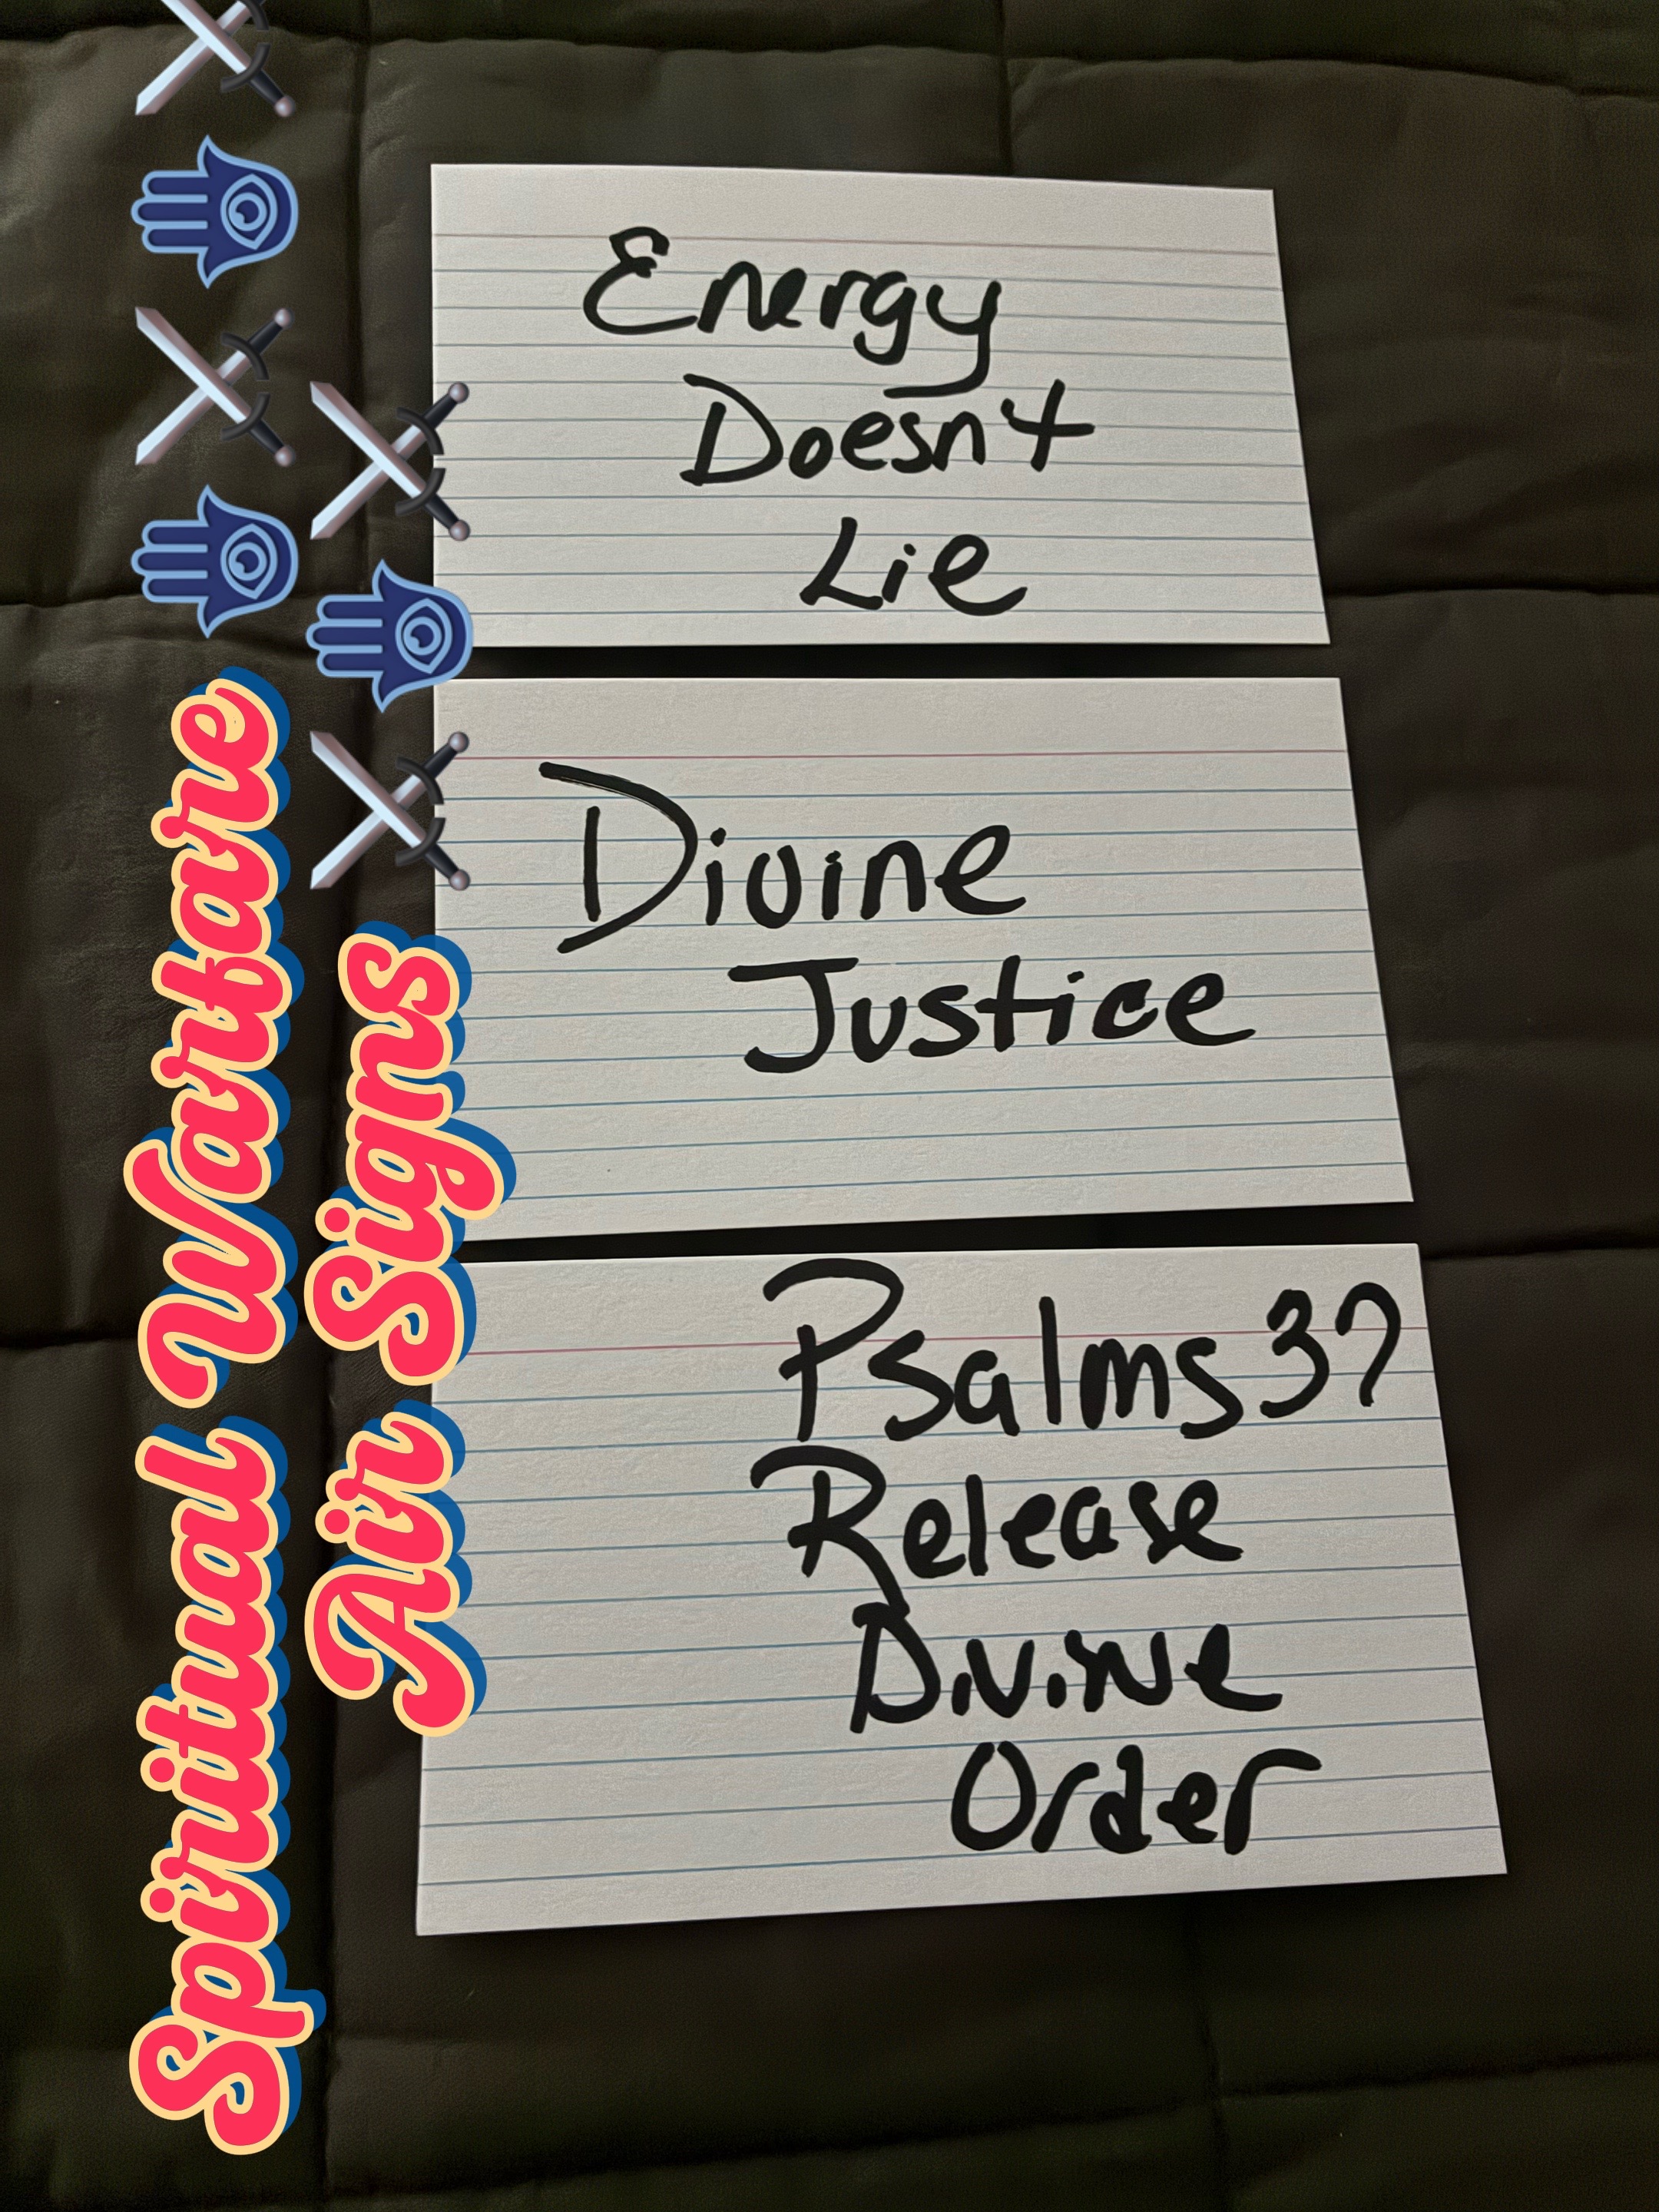 Energy
Doesn't
Lie
Divine
Justice
Psalms 37
Release
Divine
Order
Spiritual Warfare
Air Signs